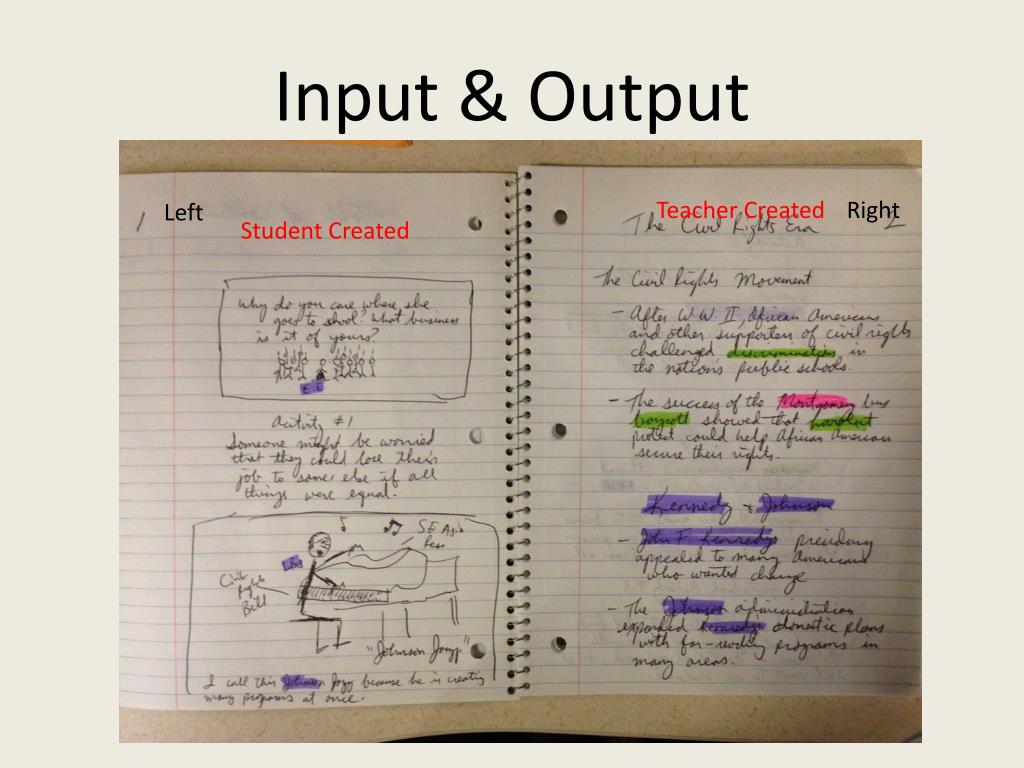 Input & Output
1
Left
Student Created
Why do you care where she
goes to shool? What business
is it of yours?
E.E
Activity #1
Someone might be worried
that they could lose their
job to some else if all
things were equal.
SE Asia
Civil
Rights
Bill
"Johnson Jazz"
I call this Johnson Jazz because he is creating
many programs at once.
Teacher Created
Right
2
The Civil Rights Era
The Civil Rights Movement
- After W.W. II, African Americans
and other supporters of civil rights
challenged discrimination in
the nation's public schools.
- The success of the Montgomery bus
boycott showed that nonviolent
protest could help African Americans
secure their rights.
Kennedy & Johnson
- John F. Kennedy's presidency
appealed to many Americans
who wanted change
- The Johnson administration
expanded Kennedy's domestic plans
with far-reaching programs in
many areas.